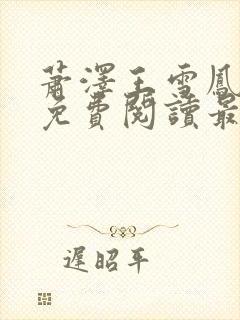 蕭澤王雪鳳
免費閱讀最
遲昭平